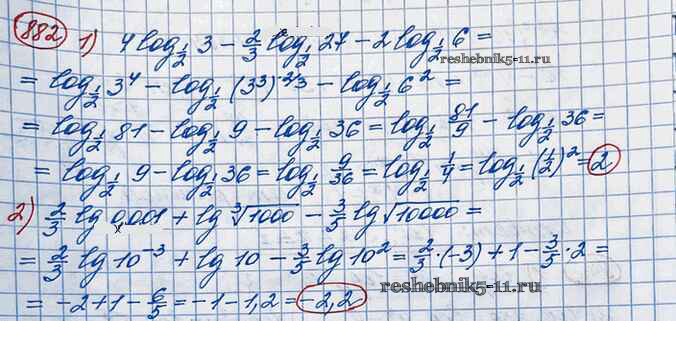 882
1) 4 log_{1/2} 3 - 2/3 log_{1/2} 27 - 2 log_{1/2} 6 =
reshebnik5-11.ru
= log_{1/2} 3^4 - log_{1/2} (3^3)^{2/3} - log_{1/2} 6^2 =
= log_{1/2} 81 - log_{1/2} 9 - log_{1/2} 36 = log_{1/2} 81/9 - log_{1/2} 36 =
= log_{1/2} 9 - log_{1/2} 36 = log_{1/2} 9/36 = log_{1/2} 1/4 = log_{1/2} (1/2)^2 = 2
2) 2/3 lg 0,001 + lg ∛1000 - 3/5 lg √10000 =
= 2/3 lg 10^{-3} + lg 10 - 3/5 lg 10^2 = 2/3 · (-3) + 1 - 3/5 · 2 =
= -2 + 1 - 6/5 = -1 - 1,2 = -2,2
reshebnik5-11.ru